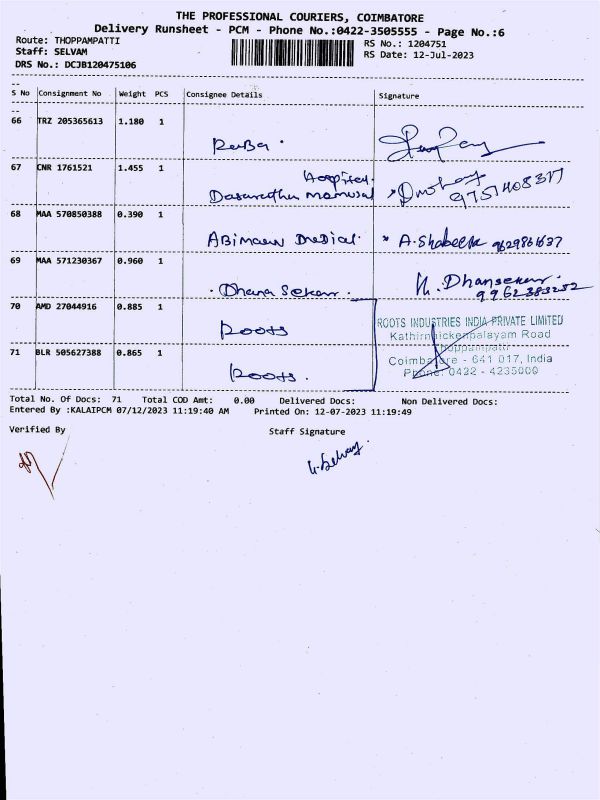 THE PROFESSIONAL COURIERS, COIMBATORE
Delivery Runsheet - PCM - Phone No.:0422-3505555 - Page No.:6
Route: THOPPAMPATTI
Staff: SELVAM
DRS No.: DCJB120475106
RS No.: 1204751
RS Date: 12-Jul-2023
S No Consignment No Weight PCS Consignee Details Signature
66 TRZ 205365613 1.180 1
67 CNR 1761521 1.455 1 Hospital.
9751408317
68 MAA 570850388 0.390 1 Abimaan Medical. A. Shabeella 9629861637
69 MAA 571230367 0.960 1 Dhana Sekar. K. Dhansekar.
9962383252
70 AMD 27044916 0.885 1 Roots
71 BLR 505627388 0.865 1 Roots.
ROOTS INDUSTRIES INDIA PRIVATE LIMITED
Kathirnaickenpalayam Road
Thoppampatti
Coimbatore - 641 017, India
Phone: 0422 - 4235000
Total No. Of Docs: 71 Total COD Amt: 0.00 Delivered Docs: Non Delivered Docs:
Entered By :KALAIPCM 07/12/2023 11:19:40 AM Printed On: 12-07-2023 11:19:49
Verified By Staff Signature